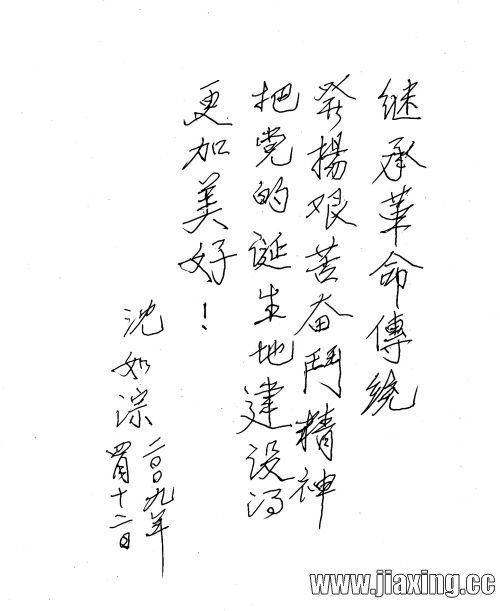 继承革命傳统
發揚艰苦奋鬥精神
把党的诞生地建设得
更加美好！
沈如淙
二〇〇九年
四月十二日
www.jiaxing.cc